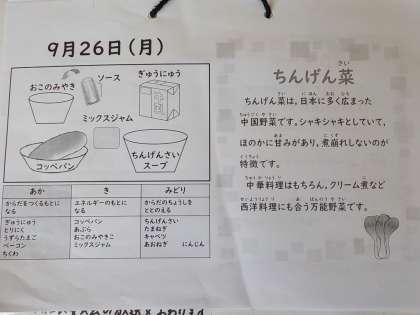 9月26日(月)
ソース
おこのみやき
ぎゅうにゅう
ミックスジャム
コッペパン
ちんげんさい
スープ
あか
き
みどり
からだをつくるもとに
なる
エネルギーのもとに
なる
からだのちょうしを
ととのえる
ぎゅうにゅう
とりにく
うずらたまご
ベーコン
ちくわ
コッペパン
あぶら
おこのみやきこ
ミックスジャム
ちんげんさい
たまねぎ
キャベツ
あおねぎ にんじん
ちんげん菜
ちんげん菜は、日本に多く広まった
中国野菜です。シャキシャキとしていて、
ほのかに甘みがあり、煮崩れしないのが
特徴です。
中華料理はもちろん、クリーム煮など
西洋料理にも合う万能野菜です。